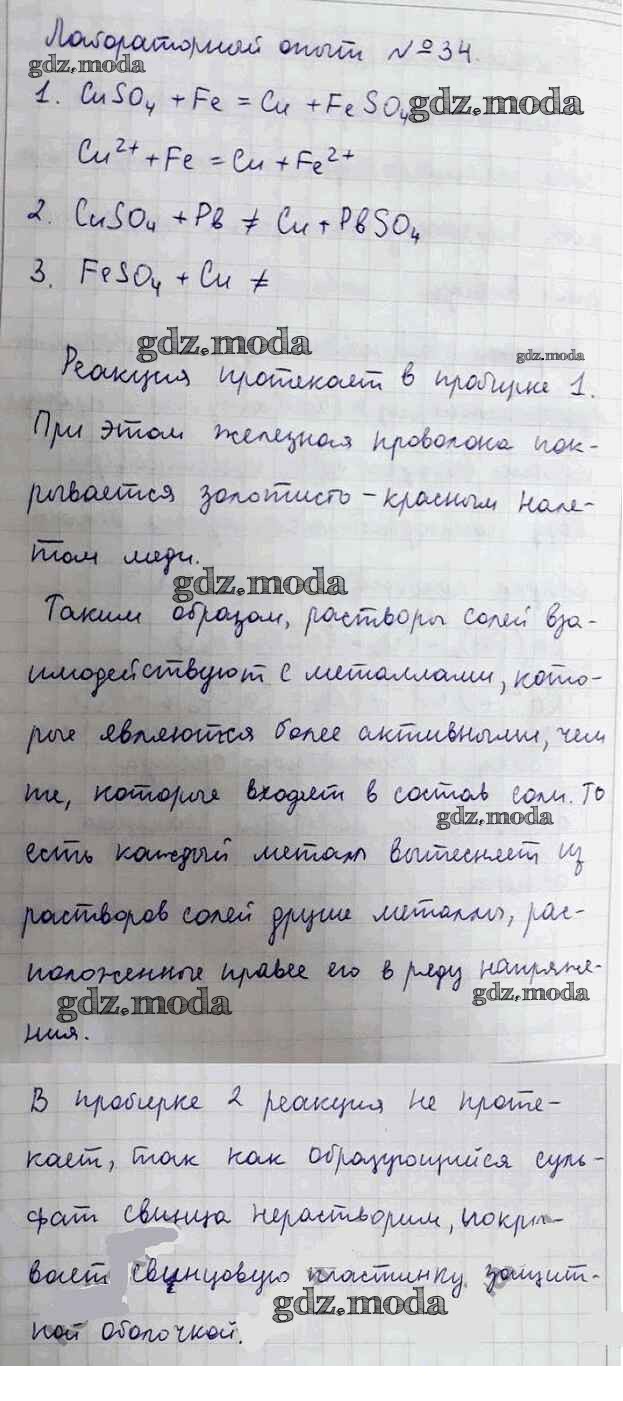 Лабораторный опыт №34.
gdz.moda
1. CuSO₄ + Fe = Cu + FeSO₄
gdz.moda
Cu²⁺ + Fe = Cu + Fe²⁺
2. CuSO₄ + Pb ≠ Cu + PbSO₄
3. FeSO₄ + Cu ≠
gdz.moda
gdz.moda
Реакция протекает в пробирке 1.
При этом железная проволока пок-
рывается золотисто-красным нале-
том меди.
gdz.moda
Таким образом, растворы солей вза-
имодействуют с металлами, кото-
рые являются более активными, чем
те, которые входят в состав соли. То
gdz.moda
есть каждый металл вытесняет из
растворов солей другие металлы, рас-
положенные правее его в ряду напряже-
gdz.moda
gdz.moda
ния.
В пробирке 2 реакция не проте-
кает, так как образующийся суль-
фат свинца нерастворим, покры-
вает свинцовую пластинку защит-
gdz.moda
ной оболочкой.